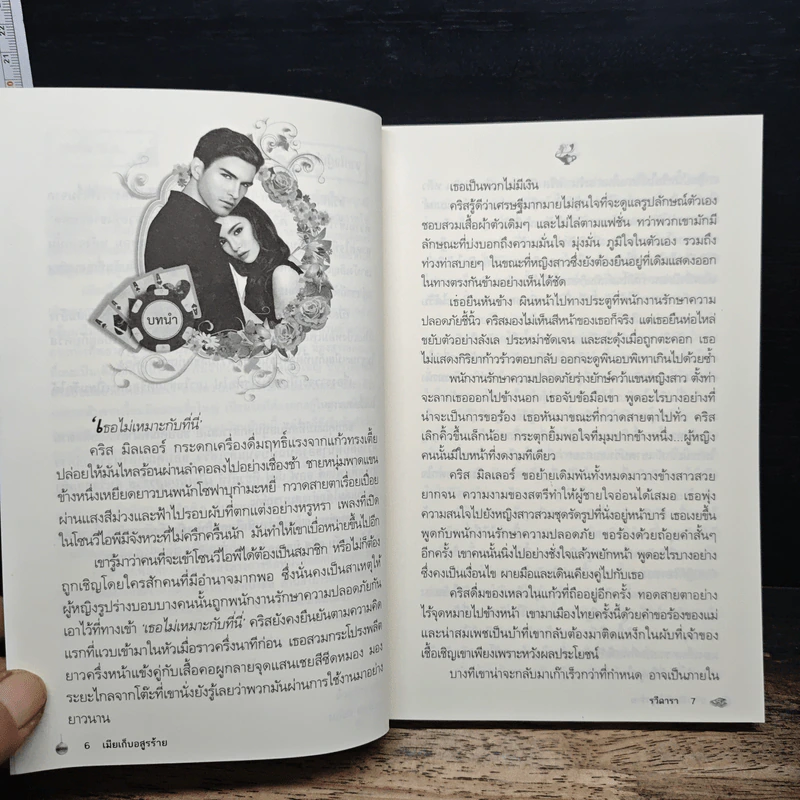 บทนำ
'เธอไม่เหมาะกับที่นี่'
คริส มิลเลอร์ กระดกเครื่องดื่มฤทธิ์แรงจากแก้วทรงเตี้ย
ปล่อยให้มันไหลร้อนผ่านลำคอลงไปอย่างเชื่องช้า ชายหนุ่มพาดแขน
ข้างหนึ่งเหยียดยาวบนพนักโซฟาบุกำมะหยี่ กวาดสายตาเรื่อยเปื่อย
ผ่านแสงสีม่วงและฟ้าไปรอบผับที่ตกแต่งอย่างหรูหรา เพลงที่เปิด
ในโซนวีไอพีมีจังหวะที่ไม่ครึกครื้นนัก มันทำให้เขาเบื่อหน่ายขึ้นไปอีก
เขารู้มาว่าคนที่จะเข้าโซนวีไอพีได้ต้องเป็นสมาชิก หรือไม่ก็ต้อง
ถูกเชิญโดยใครสักคนที่มีอำนาจมากพอ ซึ่งนั่นคงเป็นสาเหตุให้
ผู้หญิงรูปร่างบอบบางคนนั้นถูกพนักงานรักษาความปลอดภัยกัน
เอาไว้ที่ทางเข้า 'เธอไม่เหมาะกับที่นี่' คริสยังคงยืนยันตามความคิด
แรกที่แวบเข้ามาในหัวเมื่อราวครึ่งนาทีก่อน เธอสวมกระโปรงพลีต
ยาวครึ่งหน้าแข้งคู่กับเสื้อคอผูกลายจุดแสนเชยสีซีดหมอง มอง
ระยะไกลจากโต๊ะที่เขานั่งยังรู้เลยว่าพวกมันผ่านการใช้งานมาอย่าง
ยาวนาน
6 เมียเก็บอสูรร้าย
เธอเป็นพวกไม่มีเงิน
คริสรู้ดีว่าเศรษฐีมากมายไม่สนใจที่จะดูแลรูปลักษณ์ตัวเอง
ชอบสวมเสื้อผ้าตัวเดิมๆ และไม่ไล่ตามแฟชั่น ทว่าพวกเขามักมี
ลักษณะที่บ่งบอกถึงความมั่นใจ มุ่งมั่น ภูมิใจในตัวเอง รวมถึง
ท่วงท่าสบายๆ ในขณะที่หญิงสาวซึ่งยังต้องยืนอยู่ที่เดิมแสดงออก
ในทางตรงกันข้ามอย่างเห็นได้ชัด
เธอยืนหันข้าง ผินหน้าไปทางประตูที่พนักงานรักษาความ
ปลอดภัยชี้นิ้ว คริสมองไม่เห็นสีหน้าของเธอก็จริง แต่เธอยืนห่อไหล่
ขยับตัวอย่างลังเล ประหม่าชัดเจน และสะดุ้งเมื่อถูกตะคอก เธอ
ไม่แสดงกิริยาก้าวร้าวตอบกลับ ออกจะดูพินอบพิเทาเกินไปด้วยซ้ำ
พนักงานรักษาความปลอดภัยร่างยักษ์คว้าแขนหญิงสาว ตั้งท่า
จะลากเธอออกไปข้างนอก เธอจับข้อมือเขา พูดอะไรบางอย่างที่
น่าจะเป็นการขอร้อง เธอหันมาขณะที่กวาดสายตาไปทั่ว คริส
เลิกคิ้วขึ้นเล็กน้อย กระตุกยิ้มพอใจที่มุมปากข้างหนึ่ง...ผู้หญิง
คนนั้นมีใบหน้าที่งดงามทีเดียว
คริส มิลเลอร์ ขอย้ายเดิมพันทั้งหมดมาวางข้างสาวสวย
ยากจน ความงามของสตรีทำให้ผู้ชายใจอ่อนได้เสมอ เธอพุ่ง
ความสนใจไปยังหญิงสาวสวมชุดรัดรูปที่นั่งอยู่หน้าบาร์ เธอเงยขึ้น
พูดกับพนักงานรักษาความปลอดภัย ขอร้องด้วยถ้อยคำสั้นๆ
อีกครั้ง เขาคนนั้นนิ่งไปอย่างชั่งใจแล้วพยักหน้า พูดอะไรบางอย่าง
ซึ่งคงเป็นเงื่อนไข ผายมือและเดินเคียงคู่ไปกับเธอ
คริสดื่มของเหลวในแก้วที่ถืออยู่อีกครั้ง ทอดสายตาอย่าง
ไร้จุดหมายไปข้างหน้า เขามาเมืองไทยครั้งนี้ด้วยคำขอร้องของแม่
และน่าสมเพชเป็นบ้าที่เขากลับต้องมาติดแหง็กในผับที่เจ้าของ
เชื้อเชิญเขาเพียงเพราะหวังผลประโยชน์
บางทีเขาน่าจะกลับมาเก๊าเร็วกว่าที่กำหนด อาจเป็นภายใน
รวีดารา 7